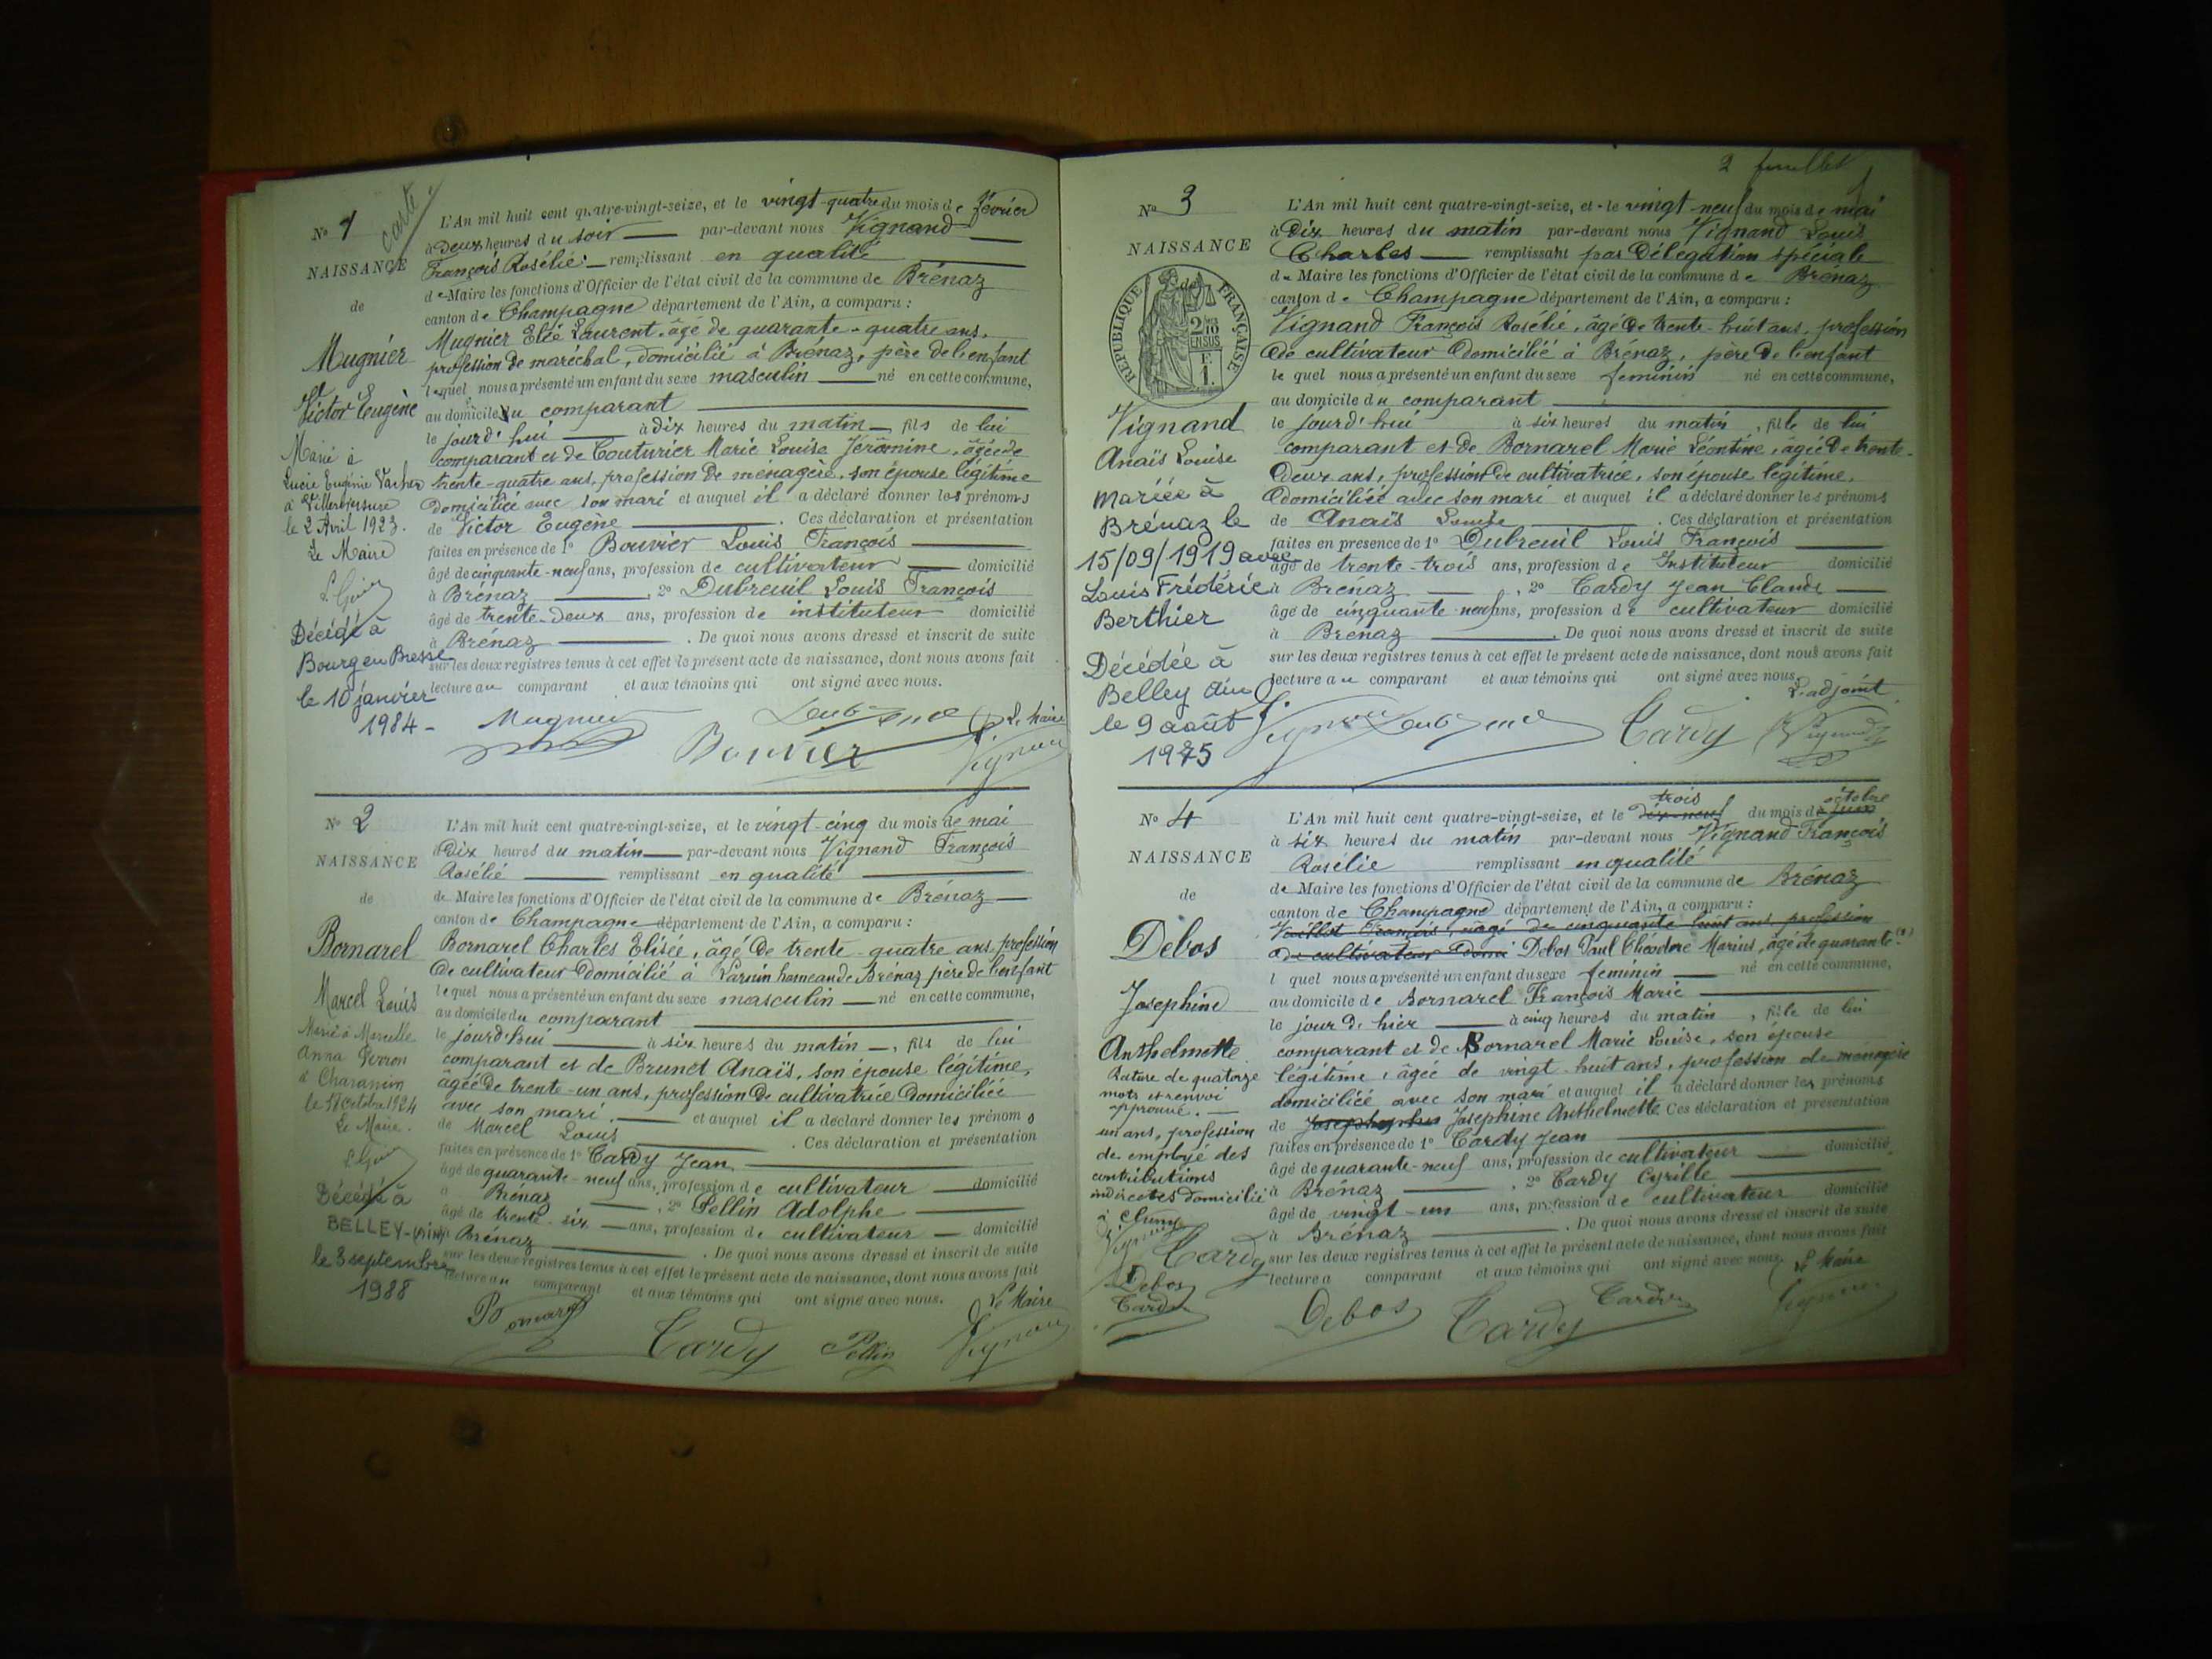 carte
No 1
NAISSANCE
de
Mugnier
Victor Eugène
Marié à
Lucie Eugénie Vacher
à Villereversure
le 2 Avril 1923.
Le Maire
Décédé à
Bourg en Bresse
le 10 janvier
1984 -
L'An mil huit cent quatre-vingt-seize, et le vingt-quatre du mois de février
à Deux heures du soir par-devant nous Vignand
François Rosélie remplissant en qualité
de Maire les fonctions d'Officier de l'état civil de la commune de Brénaz
canton de Champagne département de l'Ain, a comparu :
Mugnier Elié Laurent, âgé de quarante-quatre ans,
profession de maréchal, domicilié à Brénaz, père de l'enfant
lequel nous a présenté un enfant du sexe masculin né en cette commune,
au domicile du comparant
le jourd'hui à dix heures du matin, fils de lui
comparant et de Couturier Marie Louise Jéromine, âgée de
trente-quatre ans, profession de ménagère, son épouse légitime
domiciliée avec son mari et auquel il a déclaré donner les prénoms
de Victor Eugène. Ces déclaration et présentation
faites en présence de 1o Bouvier Louis François
âgé de cinquante-neuf ans, profession de cultivateur domicilié
à Brénaz, 2o Dubreuil Louis François
âgé de trente-deux ans, profession de instituteur domicilié
à Brénaz. De quoi nous avons dressé et inscrit de suite
sur les deux registres tenus à cet effet le présent acte de naissance, dont nous avons fait
lecture au comparant et aux témoins qui ont signé avec nous.
Le Maire
Mugnier Bouvier Vignand
No 2
NAISSANCE
de
Bornarel
Marcel Louis
Marié à Marcelle
Anna Perron
à Charancin
le 17 octobre 1924
Le Maire.
Décédé à
BELLEY-(Ain)
le 3 septembre
1988
L'An mil huit cent quatre-vingt-seize, et le vingt-cinq du mois de mai
à Dix heures du matin par-devant nous Vignand François
Rosélié remplissant en qualité
de Maire les fonctions d'Officier de l'état civil de la commune de Brénaz
canton de Champagne département de l'Ain, a comparu :
Bornarel Charles Elisée, âgé de trente-quatre ans, profession
de cultivateur domicilié à hameau de Brénaz père de l'enfant
lequel nous a présenté un enfant du sexe masculin né en cette commune,
au domicile du comparant
le jourd'hui à six heures du matin, fils de lui
comparant et de Brunet Anaïs, son épouse légitime,
âgée de trente-un ans, profession de cultivatrice domiciliée
avec son mari et auquel il a déclaré donner les prénoms
de Marcel Louis. Ces déclaration et présentation
faites en présence de 1o Cardy Jean
âgé de quarante-neuf ans, profession de cultivateur domicilié
à Brénaz, 2o Pellin Adolphe
âgé de trente-six ans, profession de cultivateur domicilié
à Brénaz. De quoi nous avons dressé et inscrit de suite
sur les deux registres tenus à cet effet le présent acte de naissance, dont nous avons fait
lecture au comparant et aux témoins qui ont signé avec nous.
Le Maire
Cardy Pellin Vignand
2 feuillet
No 3
NAISSANCE
de
RÉPUBLIQUE FRANÇAISE
2/10 EN SUS
F. 1.
Vignand
Anaïs Louise
mariée à
Brénaz le
15/09/1919 avec
Louis Frédéric
Berthier
Décédée à
Belley Ain
le 9 août
1975
L'An mil huit cent quatre-vingt-seize, et le vingt-neuf du mois de mai
à Dix heures du matin par-devant nous Vignand Louis
Charles remplissant par Délégation spéciale
de Maire les fonctions d'Officier de l'état civil de la commune de Brénaz
canton de Champagne département de l'Ain, a comparu :
Vignand François Rosélie, âgé de trente-huit ans, profession
de cultivateur domicilié à Brénaz, père de l'enfant
lequel nous a présenté un enfant du sexe féminin né en cette commune,
au domicile du comparant
le jourd'hui à six heures du matin, fille de lui
comparant et de Bornarel Marie Léontine, âgée de trente-
deux ans, profession de cultivatrice, son épouse légitime,
domiciliée avec son mari et auquel il a déclaré donner les prénoms
de Anaïs Louise. Ces déclaration et présentation
faites en présence de 1o Dubreuil Louis François
âgé de trente-trois ans, profession de Instituteur domicilié
à Brénaz, 2o Cardy Jean Claude
âgé de cinquante-neuf ans, profession de cultivateur domicilié
à Brénaz. De quoi nous avons dressé et inscrit de suite
sur les deux registres tenus à cet effet le présent acte de naissance, dont nous avons fait
lecture au comparant et aux témoins qui ont signé avec nous.
L'adjoint
Vignand Cardy Vignand
No 4
NAISSANCE
de
Debos
Josephine
Anthelmette
Rature de quatorze
mots et renvoi
approuvé.
un ans, profession
de employé des
contributions
indirectes domicilié
à Cluny
Vignand
Cardy
Debos
Cardy
trois octobre
L'An mil huit cent quatre-vingt-seize, et le dix-neuf du mois de juin
à six heures du matin par-devant nous Vignand François
Rosélie remplissant en qualité
de Maire les fonctions d'Officier de l'état civil de la commune de Brénaz
canton de Champagne département de l'Ain, a comparu :
François, âgé de cinquante-huit ans profession
de cultivateur domi Debos Paul Théodore Marius, âgé de quarante-
lquel nous a présenté un enfant du sexe féminin né en cette commune,
au domicile de Bornarel François Marie
le jour d'hier à cinq heures du matin, fille de lui
comparant et de Bornarel Marie Louise, son épouse
légitime, âgée de vingt-huit ans, profession de ménagère
domiciliée avec son mari et auquel il a déclaré donner les prénoms
de Josephine Anthelmette Ces déclaration et présentation
faites en présence de 1o Cardy Jean
âgé de quarante-neuf ans, profession de cultivateur domicilié
à Brénaz, 2o Cardy Cyrille
âgé de vingt-un ans, profession de cultivateur domicilié
à Brénaz. De quoi nous avons dressé et inscrit de suite
sur les deux registres tenus à cet effet le présent acte de naissance, dont nous avons fait
lecture a comparant et aux témoins qui ont signé avec nous.
Le Maire
Debos Cardy Cardy Vignand